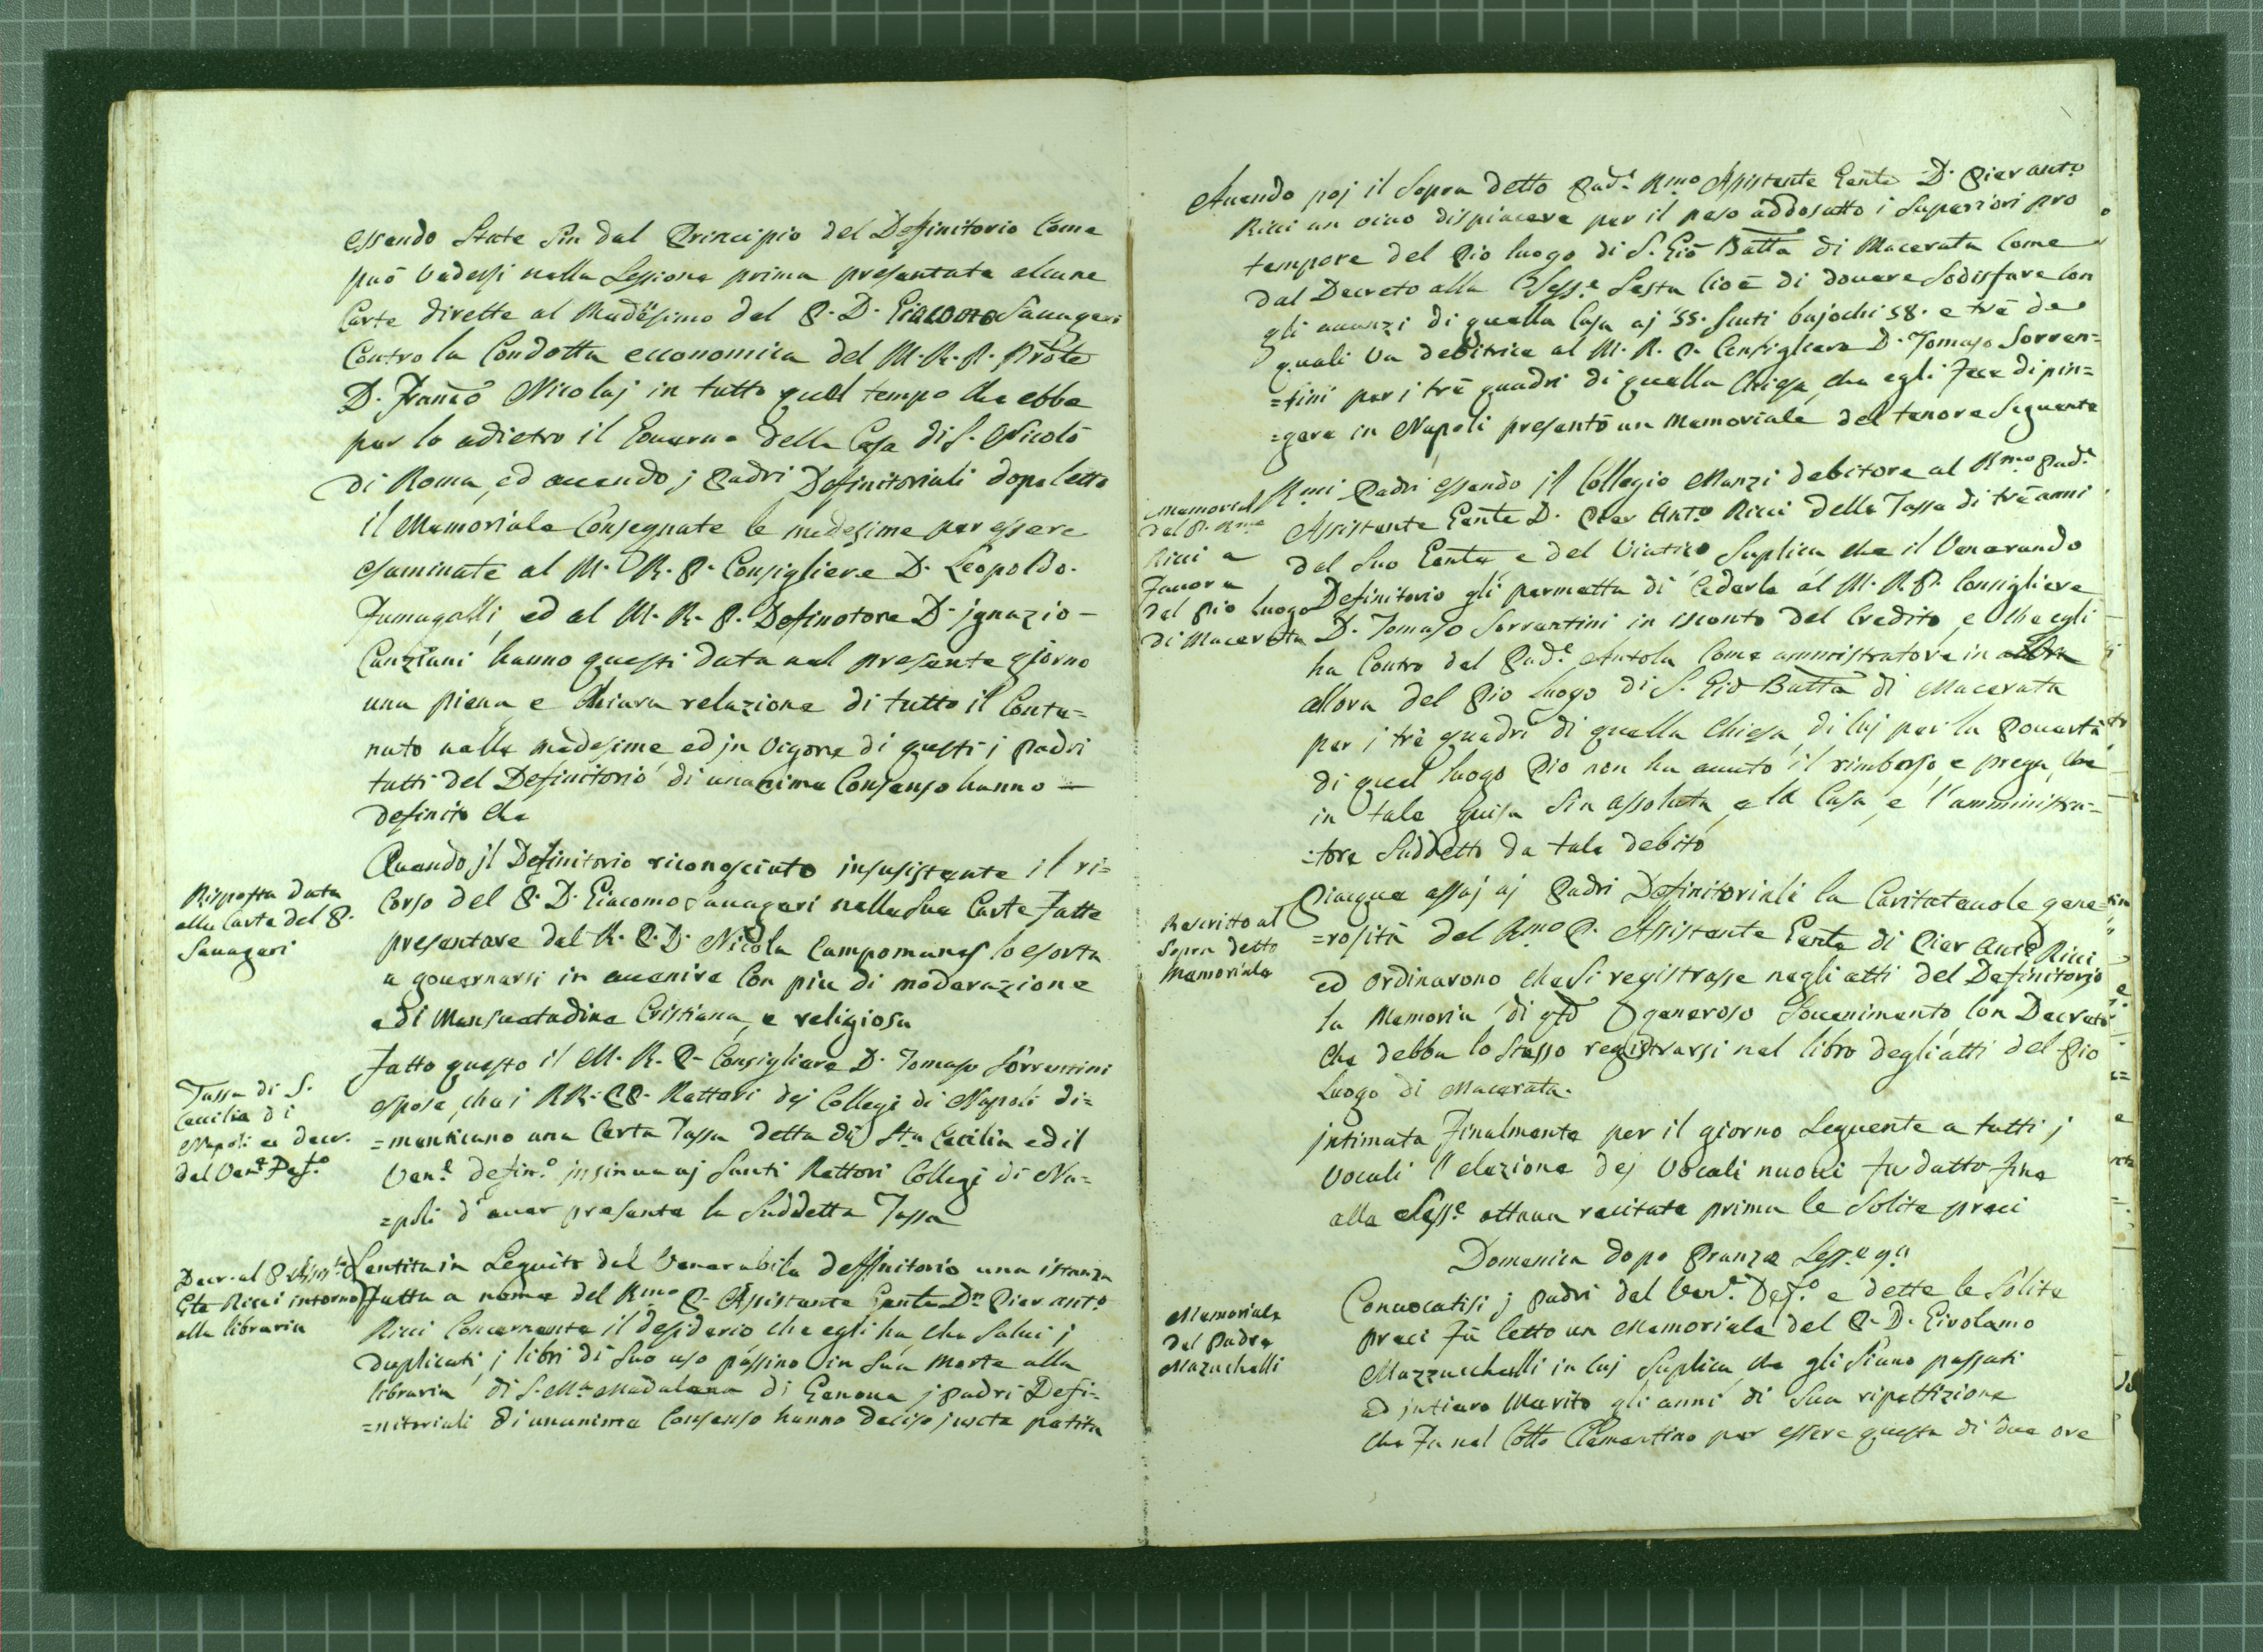 essendo State Sin dal Principio del Definitorio Come
può Vedessi nella Sessione prima presentate alcune
Carte dirette al Madesimo dal P. D. Giacomo Sauageri
Contro la Condotta economica del M. R. P. Prōte
D. Franco Nicolaj in tutto quel tempo che ebbe
per lo adietro il Gouerno della Casa di S. Nicolò
di Roma, ed auendo j Padri Definitoriali dopo letto
il Memoriale Consegnate le medesime per essere
esaminate al M. R. P. Consigliere D. Leopoldo.
Fumagalli, ed al M. R. P. Definotore D. jgnazio -
Canziani hanno questi data nel presente giorno
una piena e Chiara relazione di tutto il Conte=
nuto nelle medesime ed jn Vigore di questi j Padri
tutti del Definitorio di unanime Consenso hanno -
definito che
Risposta data
alla Carte del P.
Sauageri
Quando jl Definitorio riconosciuto insusistente il ri=
Corso del P. D. Giacomo Sauageri nelle Sue Carte Fatte
presentare dal R. P. D. Nicola Campomanes lo esorta
a gouernarsi in auenire Con piu di moderazione
e di Mansuetudine Cristiana, e religiosa
Tassa di S.
Cecilia di
Napoli ex decr.
del Ven.e Def.o
Fatto questo il M. R. P. Consigliere D. Tomaso Sorrentini
espose, che i RR. PP. Rettori dej Collegi di Napoli di=
=menticano una Certa Tassa detta di Sta Cecilia ed il
Ven.e defin.o jnsinua aj Santi Rettori Collegi di Na=
=poli d'auer presente la Suddetta Tassa
Decr. al P. Assis.te
Gte Ricci intorno
alla libraria
Sentita in Seguito dal Venerabile deffinitorio una istanza
Fatta a nome del Rmo P. Assistente Gente Dn Pier anto
Ricci Concernente il desiderio che egli ha che Salui j
duplicati j libri di Suo uso passino in Sua Morte alla
libraria di S. Ma Madalena di Genoua j Padri Defi=
=nitoriali di unanime Consenso hanno deciso juxta petita
Auendo poj il Sopra detto Pad.e Rmo Assistente Gente D. Pier anto
Ricci un viuo dispiacere per il peso addosatto i Superiori pro
tempore del Pio luogo di S. Gio Batta di Macerata Come
dal Decreto alla Sess.e Sesta Cioè di douere Sodisfare Con
gli auanzi di quella Casa aj 55. Scuti bajochi 58. e trè de
quali Va debitrice al M. R. P. Consigliere D. Tomaso Sorren=
=tini per j trè quadri di quella Chiesa, che egli Fece dipin=
=gere in Napoli presentò un Memoriale del tenore Seguente
Memoriale
del P. Rmo
Ricci a
Fauore
del Pio luogo
di Macerata
Rmi Padri essendo jl Collegio Manzi debitore al Rmo Pad.e
Assistente Gente D. Pier Anto Ricci della Tassa di trè anni
del Suo Gente, e del Viatico Suplica che il Venerando
Definitorio gli permetta di Cederle al M. R. P. Consigliere
D. Tomaso Sorrentini in isconto del Credito, e Che egli
ha Contro del Pad.e Antola Come ammistratore in
allora del Pio Luogo di S. Gio Batta di Macerata
per j trè quadri di quella Chiesa, di Cuj per la Pouertà
di quel luogo Pio non ha auuto il rimborso, e prega, che
in tale Guisa Sia assoluta, e la Casa, e l'amministra=
=tore Suddetto da tale debito
Rescritto al
Sopra detto
Memoriale
Piacque assaj aj Padri Definitoriali la Caritateuole gene=
=rosità del Rmo P. Assistente Gente di Pier Anto Ricci
ed Ordinarono che Si registrasse negli atti del Definitorio
la Memoria di qto generoso Souenimento Con Decreto
Che debba lo Stesso registrarsi nel libro degli atti del Pio
Luogo di Macerata.
jntimata Finalmente per il giorno Seguente a tutti j
Vocali l'elezione dej Vocali nuoui fu datto fine
alla Sess.e ottaua recitate prima le Solite preci
Domenica dopo Pranzo Sess.e 9.a
Memoriale
del Padre
Mazuchelli
Conuocatisi j Padri del Ven.e Def.o e dette le Solite
preci Fù letto un Memoriale del P. D. Girolamo
Mazzucchelli in Cuj Suplica, che gli Siano passati
ad jntiero Merito gli anni di Sua ripettizione
che Fa nel Collo Clementino per essere questa di due ore